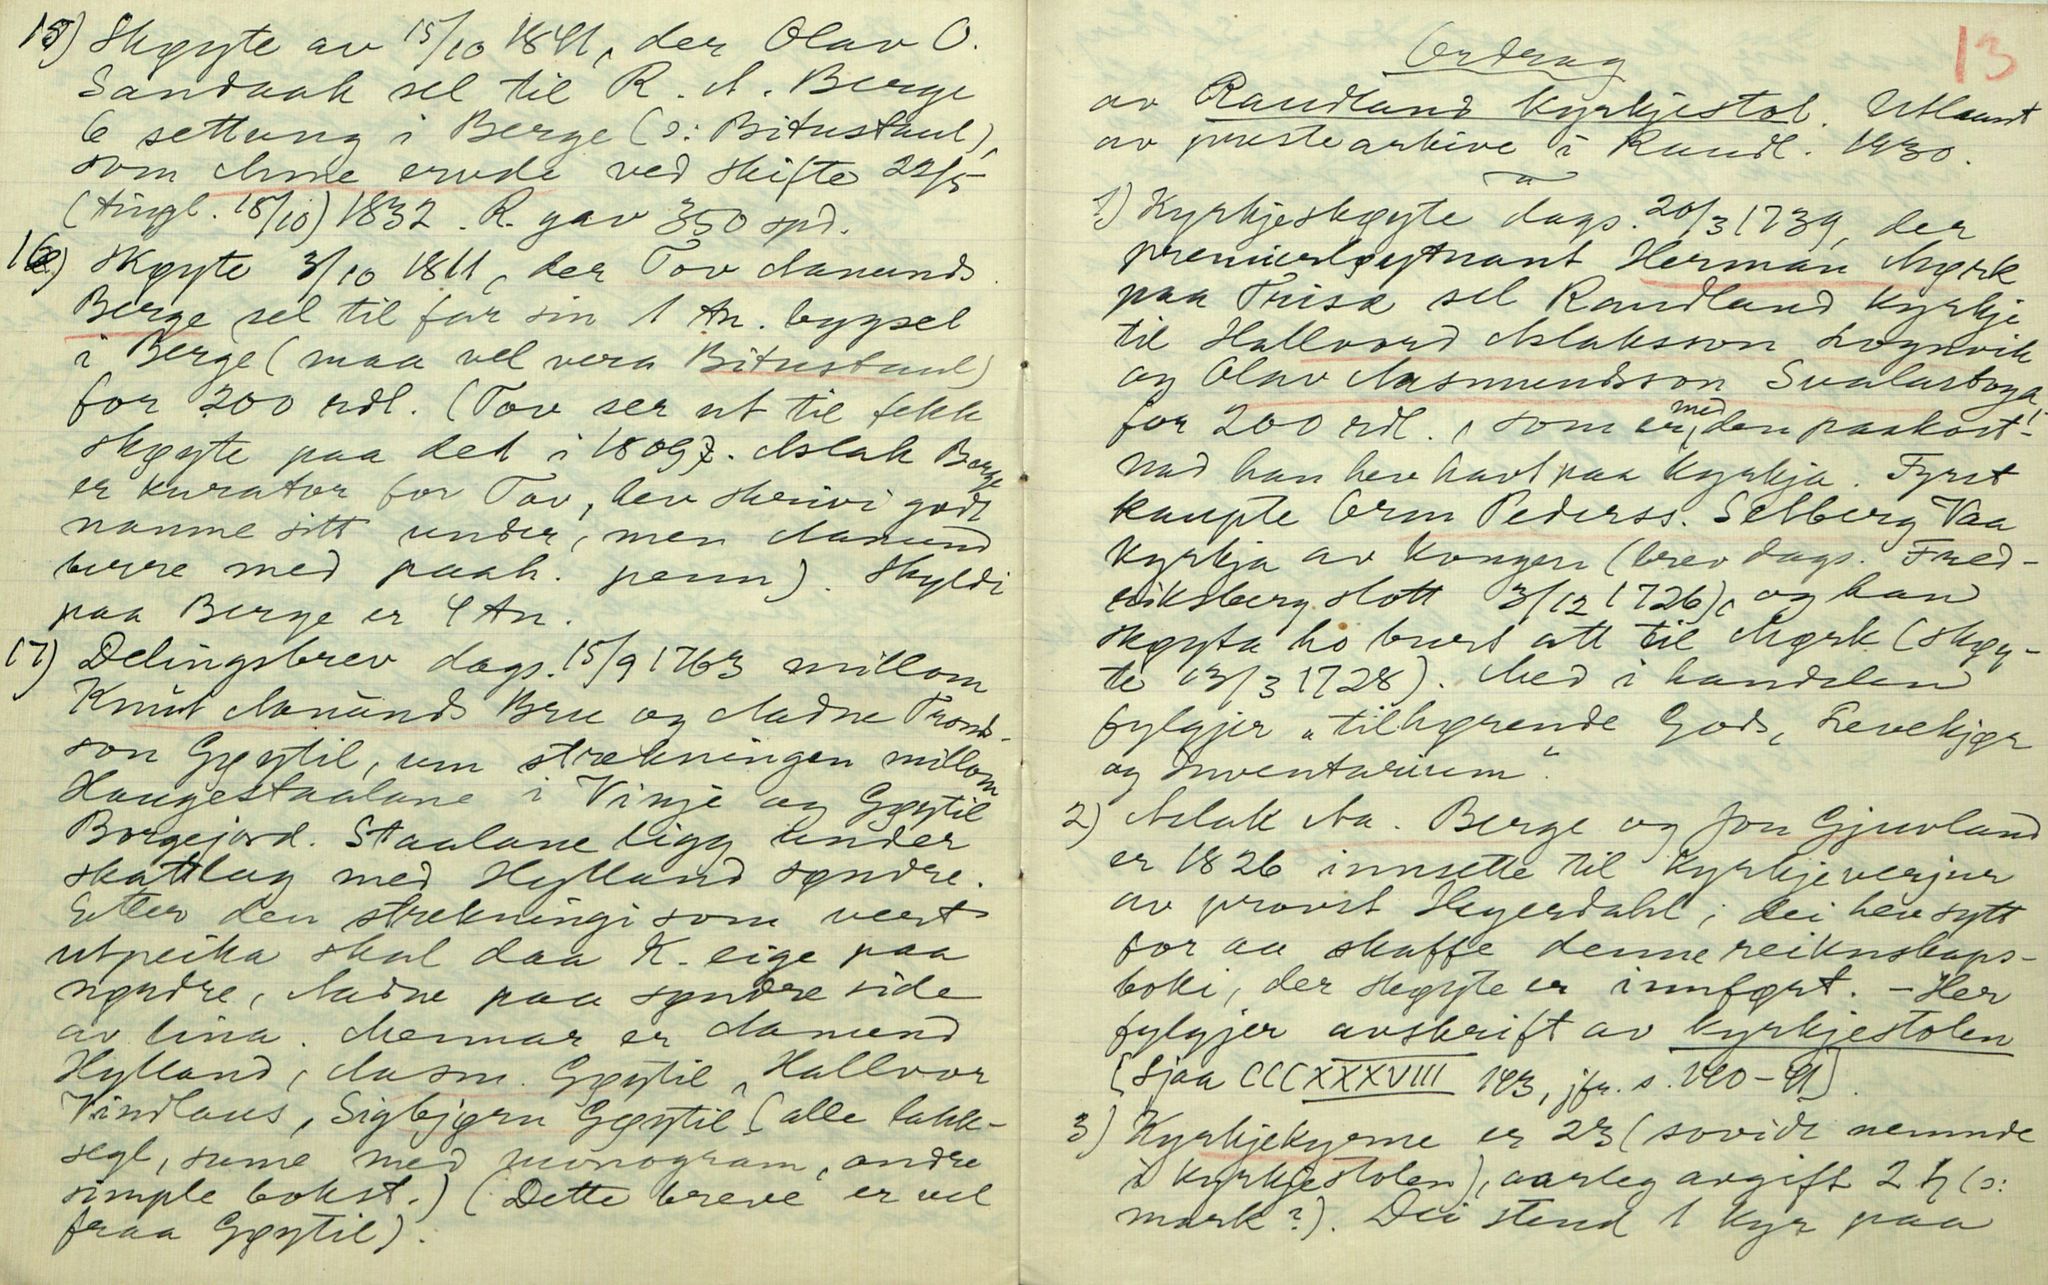 15) Skøyte av 15/10 1841, der Olav O.
Sandaak sel til R. A. Berge
6 settung i Berge (ɔ: Bitustaul),
som Anne ervde ved skifte 22/5
(tingl. 18/10) 1832. R. gav 350 spd.
16) Skøyte 3/10 1811, der Tov Aamunds
Berge sel til far sin 1 tn. bygsel
i Berge (maa vel vera Bitustaul)
for 200 rdl. (Tov ser ut til fekk
skøyte paa det i 1809. Aslak Berge
er kurator for Tov, hev skrivi godt
namne sitt under, men Aamund
berre med paah. penn). Skyldi
paa Berge er 4 tn.
17) Delingsbrev dags. 15/9 1763 millom
Knut Aamunds Bru og Aadne Tronds-
son Gøytil, um strekningen millom
Haugestaalane i Vinje og Gøytil
Borgejord. Staalane ligg under
skattlag med Hylland søndre.
Etter den strekningi som vert
utpeika skal daa K. eige paa
nørdre, Aadne paa søndre side
av lina. Mennar er Aamund
Hylland, Aasm. Gøytil, Hallvor
Vindlaus, Sigbjørn Gøytil (alle lakk-
segl, sume med monogram, andre
simple bokst.) (Dette breve er vel
fraa Gøytil).
13
Ordrag
av Raudland kyrkjestol. Utlaant
av prestearkive i Raudl. 1930.
1) Kyrkjeskøyte dags. 20/3 1739, der
premierløytnant Herman Mørk
paa Trisæ sel Raudland kyrkje
til Hallvord Aslaksson Lognvik
og Olav Aasmundsson Svalastoga
for 200 rdl., som er med den paakost-
nad han hev havt paa kyrkja. Fyrst
kaupte Orm Pederss. Selberg Vaa
kyrkja av kongen (brev dags. Fred-
riksberg slott 3/12 1726), og han
skøyta ho burt att til Mørk (skøy-
te 13/3 1728). Med i handelen
fylgjer „tilhørende Gods, Levekjør
og Inventarium“.
2) Aslak Aa. Berge og Jon Gjuvland
er 1826 innsette til kyrkjeverjur
av provst Heyerdahl; dei hev sytt
for aa skaffe denne reiknskaps-
boki, der skøyte er innført. – Her
fylgjer avskrift av kyrkjestolen
[Sjaa CCCXXXVIII 193, jfr. s. 190–91].
3) Kyrkjekyrne er 23 (sovidt nemnde
i kyrkjestolen), aarleg avgift 2 ℔ (ɔ:
mark?). Dei stend 1 kyr paa